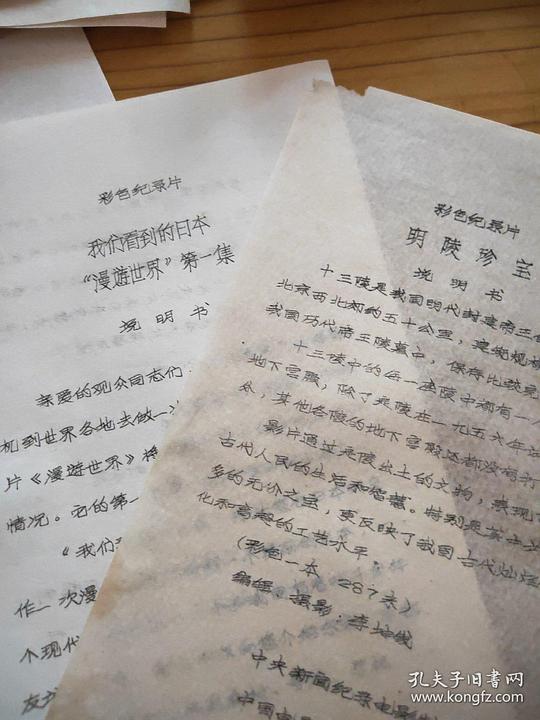 彩色纪录片
我们看到的日本
“漫遊世界”第一集
说明书
亲爱的观众同志们
机到世界各地去做一次
片《漫遊世界》将
情况。它的第一
《我们
作一次漫
个现代
友
彩色纪录片
明陵珍宝
说明书
十三陵是我国明代封建帝王的
北京西北郊约五十公里，建筑规模
我国历代帝王陵墓中，保存比较完
十三陵中的每一座陵中都有一个
地下宫殿，除了定陵在一九五六年试
外，其他各陵的地下宫殿还都没有打
影片通过定陵出土的文物，表现了
古代人民的生活和智慧。特别是
多的无价之宝，更反映了我国古代灿烂
化和高超的工艺水平。
(彩色一本 287米)
编辑、摄影：李
中央新闻纪录电影
中国电
孔夫子旧书网
www.kongfz.com